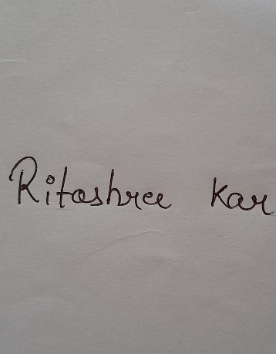 Ritashree Kar